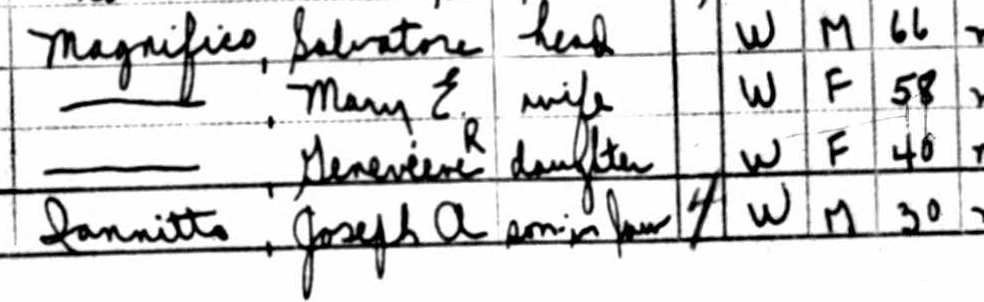 Magnifico, Salvatore head W M 66
——, Mary E. wife W F 58
——, Genevieve R daughter W F 40
Iannitto, Joseph A son in law 4 W M 30